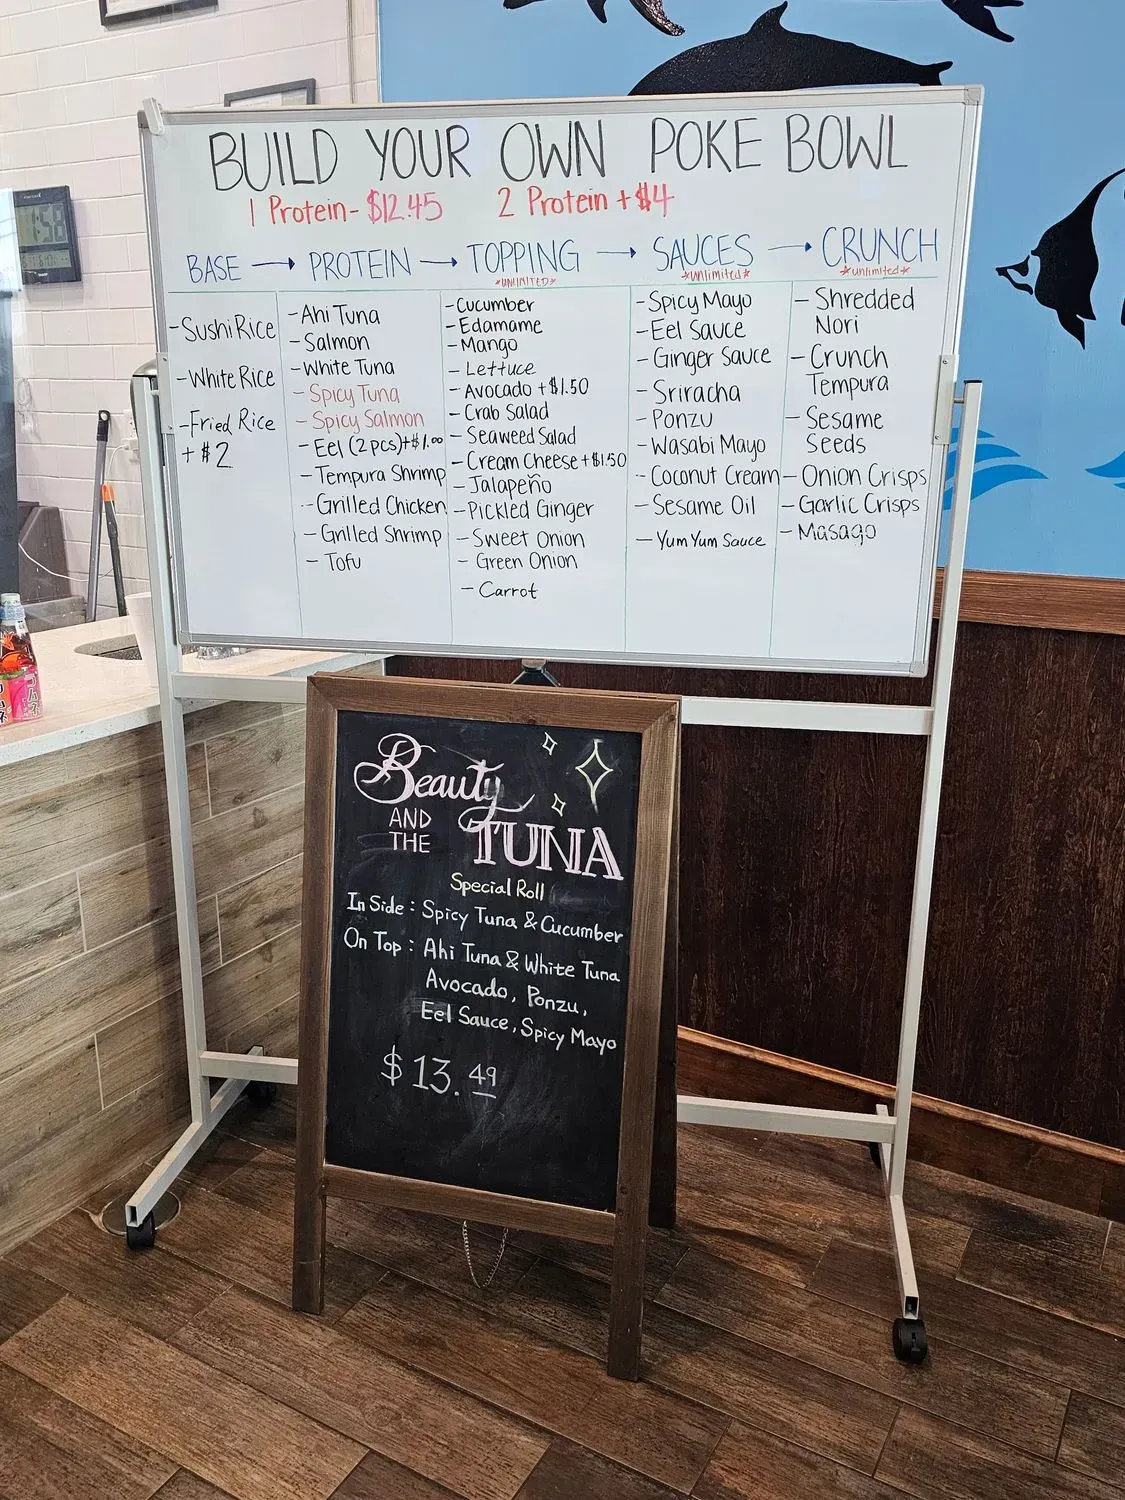 BUILD YOUR OWN POKE BOWL
1 Protein- $12.45 2 Protein + $4
BASE → PROTEIN → TOPPING → SAUCES → CRUNCH
*UNLIMITED* *unlimited* *unlimited*
-Sushi Rice
-White Rice
-Fried Rice
+ $2
-Ahi Tuna
-Salmon
-White Tuna
-Spicy Tuna
-Spicy Salmon
-Eel (2 pcs)+$1.00
-Tempura Shrimp
-Grilled Chicken
-Grilled Shrimp
-Tofu
-Cucumber
-Edamame
-Mango
-Lettuce
-Avocado +$1.50
-Crab Salad
-Seaweed Salad
-Cream Cheese +$1.50
-Jalapeño
-Pickled Ginger
-Sweet Onion
-Green Onion
-Carrot
-Spicy Mayo
-Eel Sauce
-Ginger Sauce
-Sriracha
-Ponzu
-Wasabi Mayo
-Coconut Cream
-Sesame Oil
-Yum Yum Sauce
-Shredded
Nori
-Crunch
Tempura
-Sesame
Seeds
-Onion Crisps
-Garlic Crisps
-Masago
Beauty
AND
THE
TUNA
Special Roll
In Side : Spicy Tuna & Cucumber
On Top : Ahi Tuna & White Tuna
Avocado, Ponzu,
Eel Sauce, Spicy Mayo
$13.49